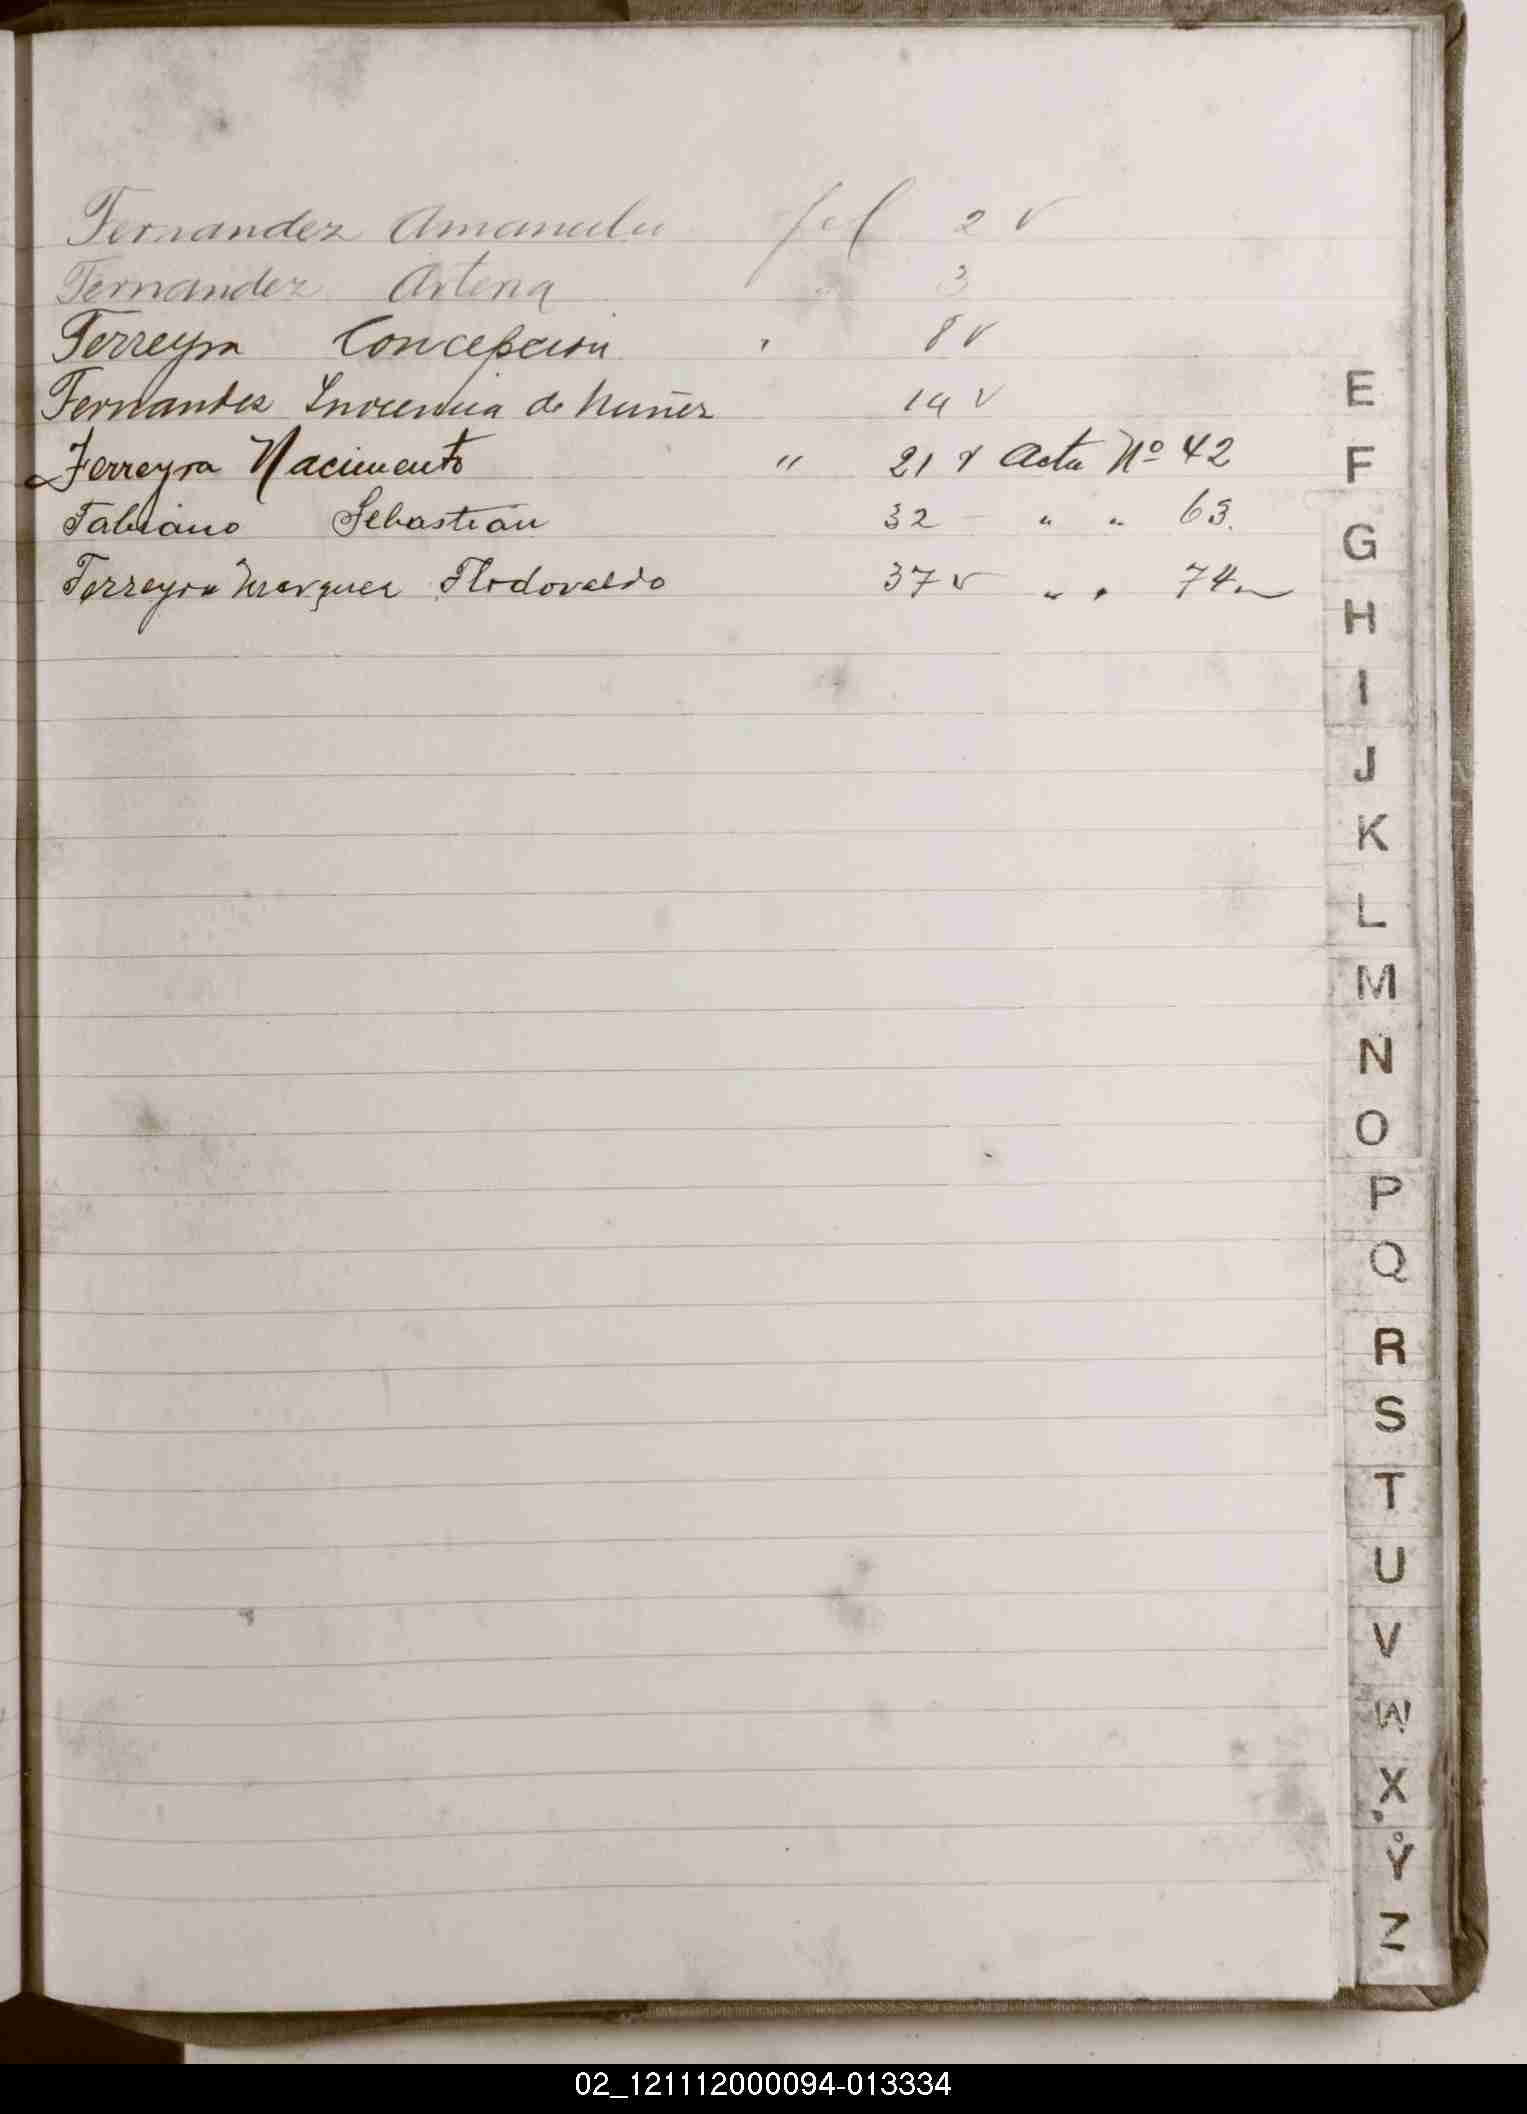 Fernandez fol 2 v
Fernandez Artena " 3
Ferreyra Concepcion " 8 v
Fernandez Inocencia de Nuñez 14 v
Ferreyra Nacimento " 21 v Acta Nº 42
Fabiano Sebastián 32 - " " 63.
Ferreyra Marquez Flodovaldo 37 v " " 74
E
F
G
H
I
J
K
L
M
N
O
P
Q
R
S
T
U
V
W
X
Y
Z
02_121112000094-013334